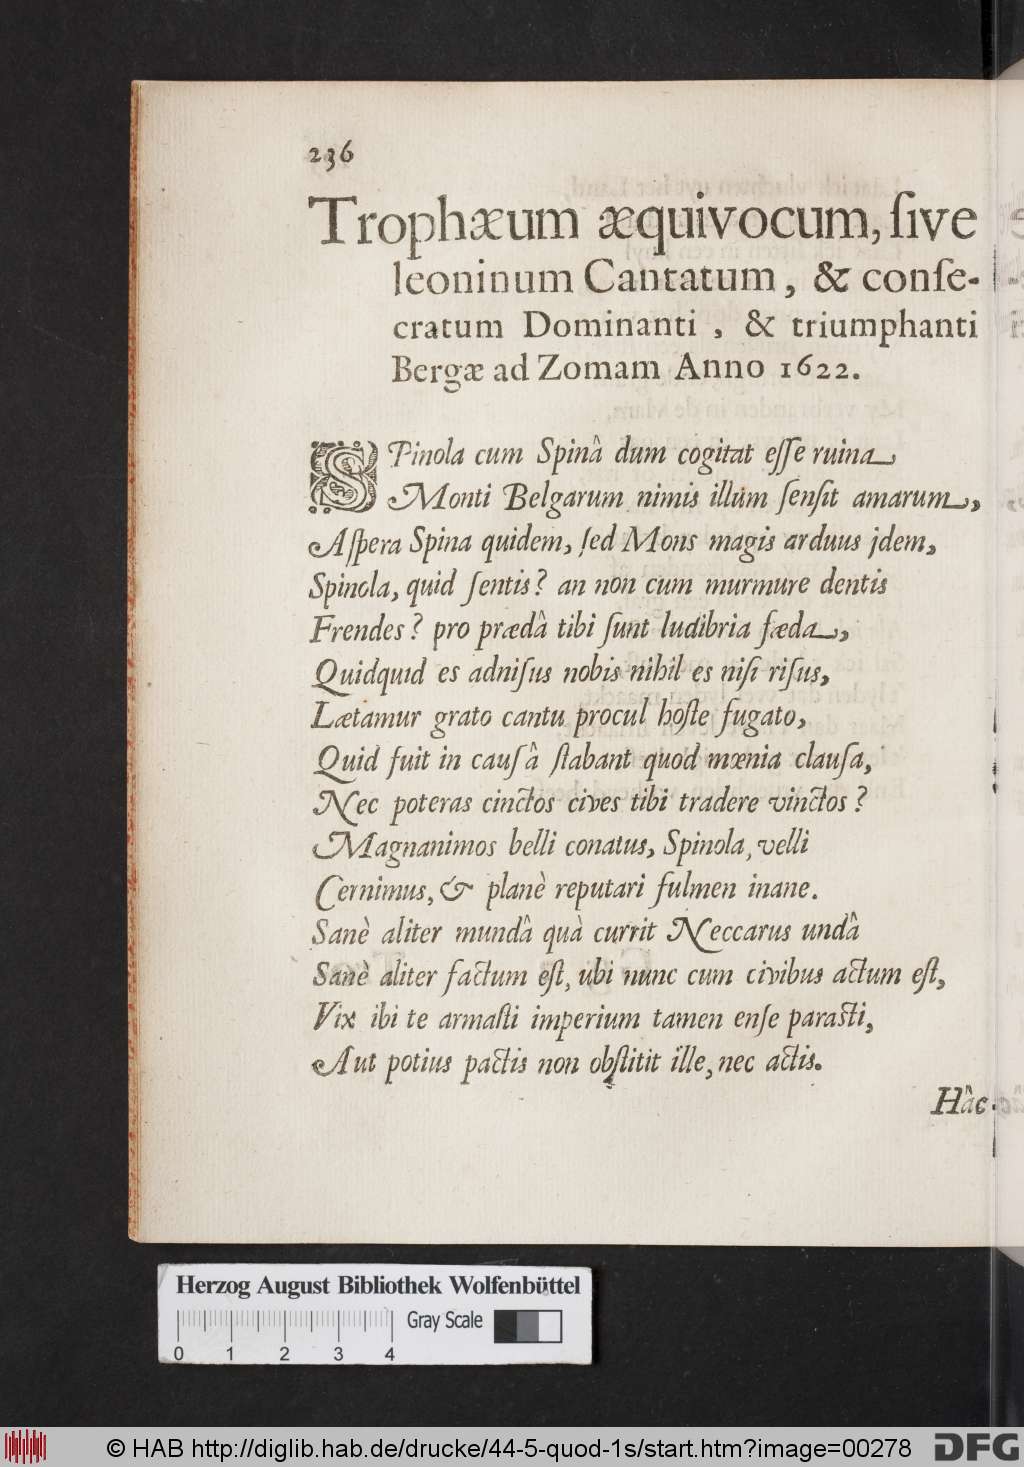 236
Trophæum æquivocum, ſive
leoninum Cantatum, & conſe-
cratum Dominanti, & triumphanti
Bergæ ad Zomam Anno 1622.
SPinola cum Spinâ dum cogitat eſſe ruina
Monti Belgarum nimis illum ſenſit amarum,
Aſpera Spina quidem, ſed Mons magis arduus jdem,
Spinola, quid ſentis? an non cum murmure dentis
Frendes? pro prædâ tibi ſunt ludibria fæda,
Quidquid es adniſus nobis nihil es niſi riſus,
Lætamur grato cantu procul hoſte fugato,
Quid fuit in cauſâ ſtabant quod mœnia clauſa,
Nec poteras cinctos cives tibi tradere vinctos?
Magnanimos belli conatus, Spinola, velli
Cernimus, & planè reputari fulmen inane.
Sanè aliter mundâ quà currit Neccarus undâ
Sanè aliter factum eſt, ubi nunc cum civibus actum eſt,
Vix ibi te armaſti imperium tamen enſe paraſti,
Aut potius pactis non obſtitit ille, nec actis.
Hâc
Herzog August Bibliothek Wolfenbüttel
Gray Scale
0 1 2 3 4
© HAB http://diglib.hab.de/drucke/44-5-quod-1s/start.htm?image=00278
DFG